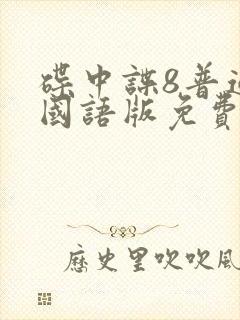 碟中諜8普通
國語版免費
歷史里吹吹風